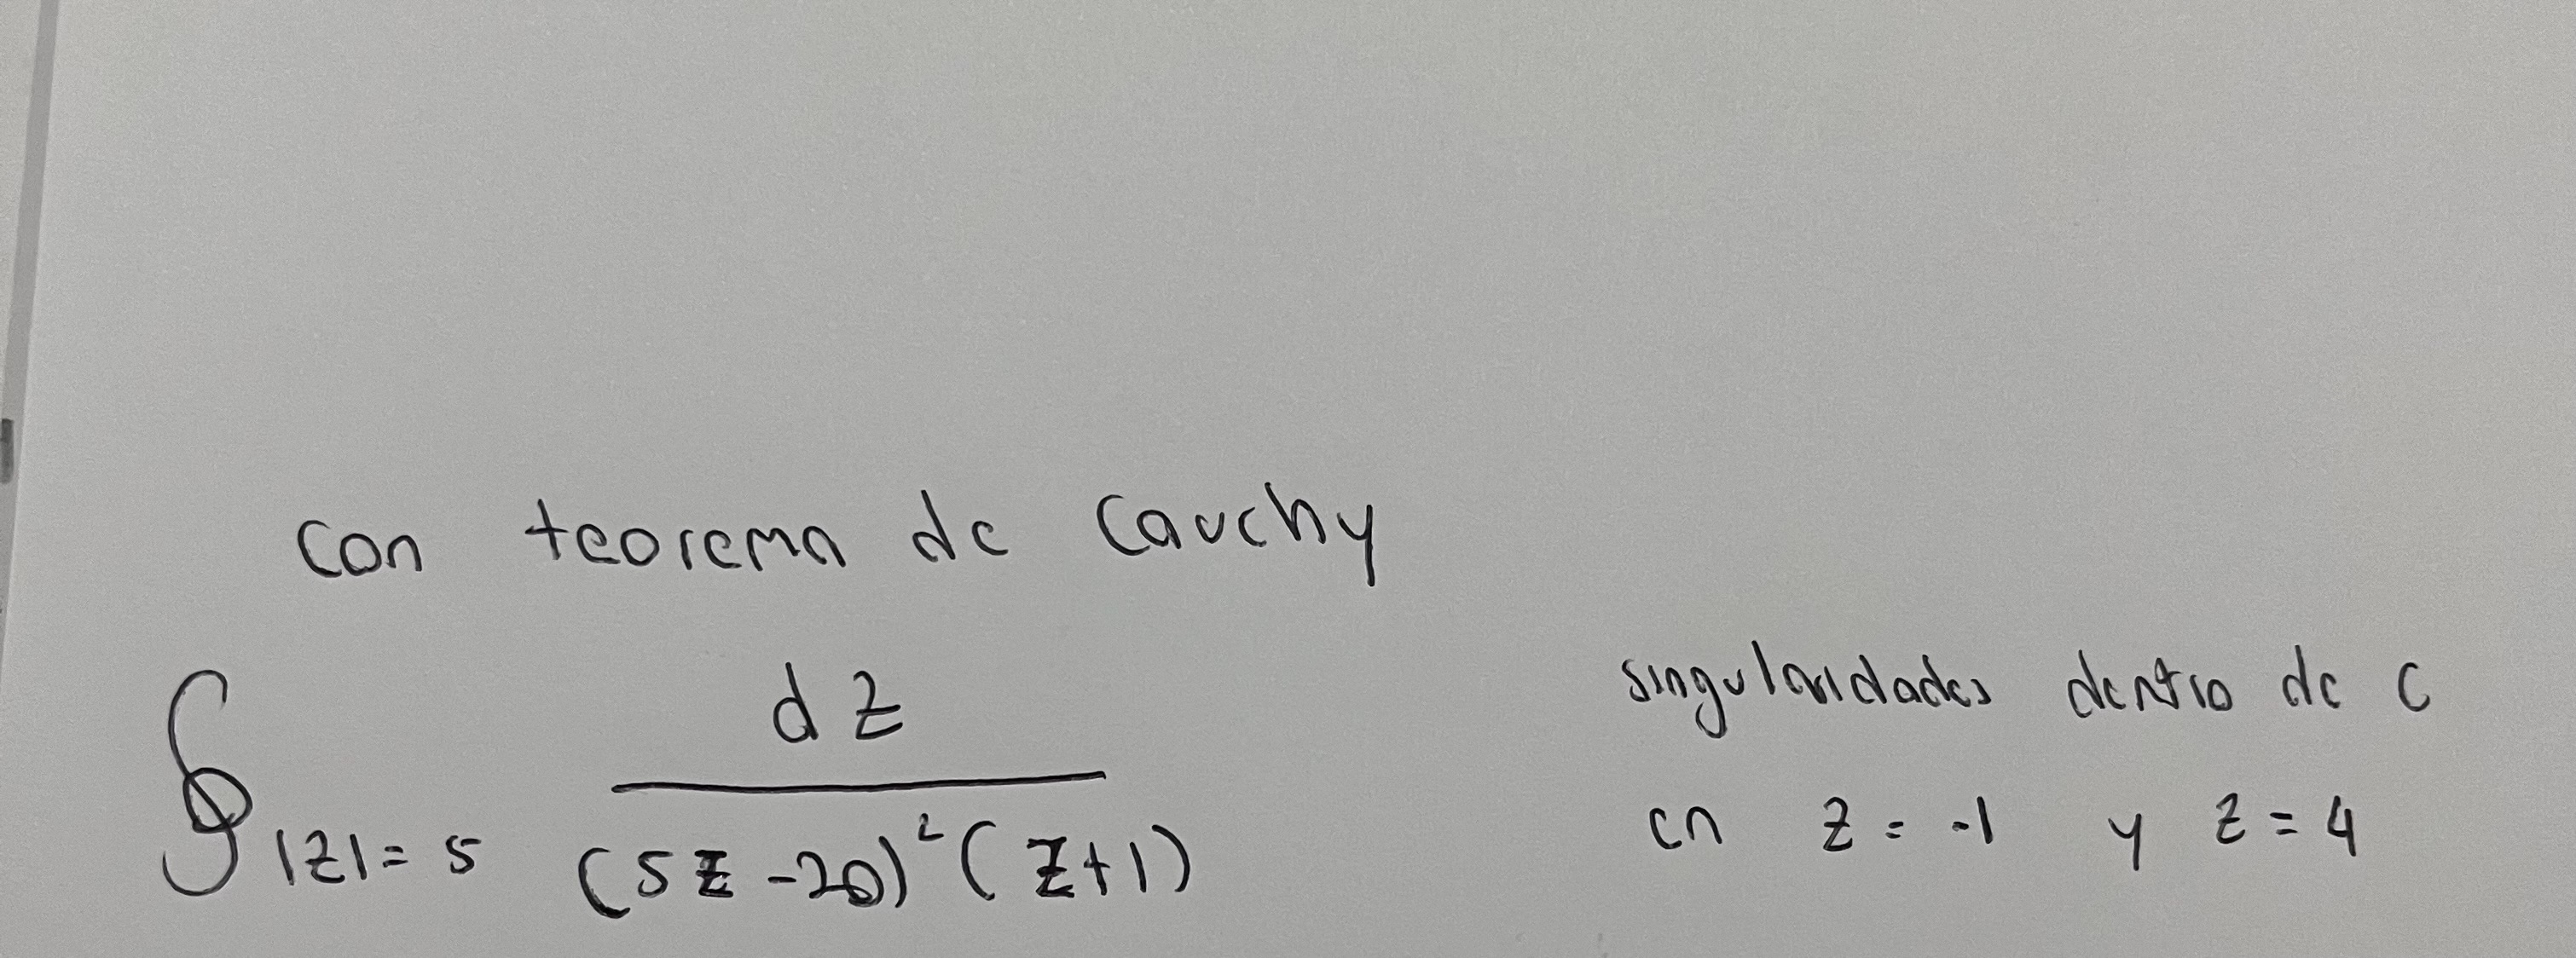 con teorema de Cauchy
∮|z|=5 dz / (5z-20)²(z+1)
singularidades dentro de c
en z = -1 y z = 4